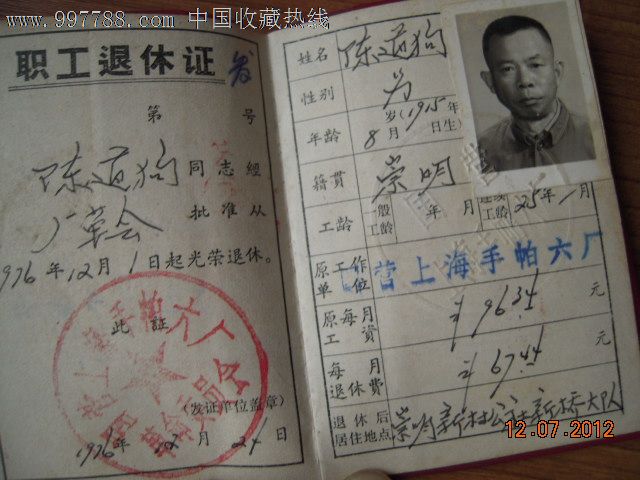 www.997788.com 中国收藏热线
职工退休证
第 号
陈道狗同志经
厂革会批准从
1976年12月1日起光荣退休。
此证
(发证单位盖章)
1976年12月24日
姓名 陈道狗
性别 男
年龄 岁(1915年8月 日生)
籍贯 崇明
工龄 一般工龄 年 月 连续工龄 25年1月
原工作单位 国营上海手帕六厂
原每月工资 ¥96.34 元
每月退休费 ¥67.44 元
退休后居住地点 崇明新村公社新桥大队
12.07.2012